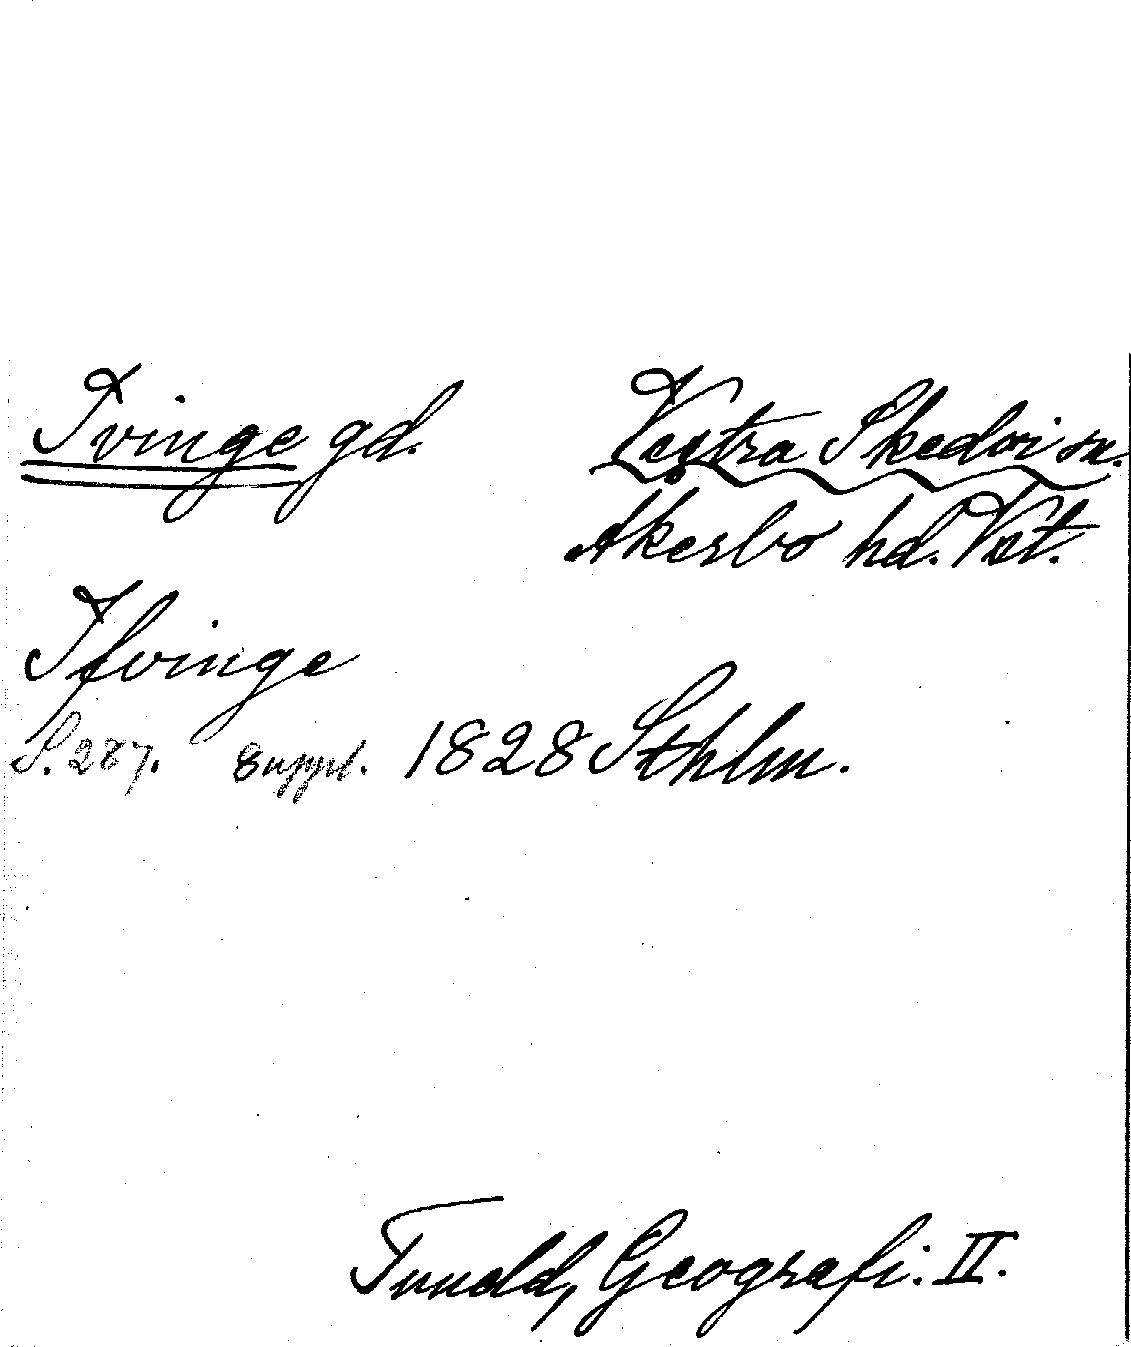 Ivinge gd. Vestra Skedvi sn.
Åkerbo hd. Vst.
Ifvinge
S. 287. Suppl. 1828 Sthlm.
Tuneld, Geografi. II.